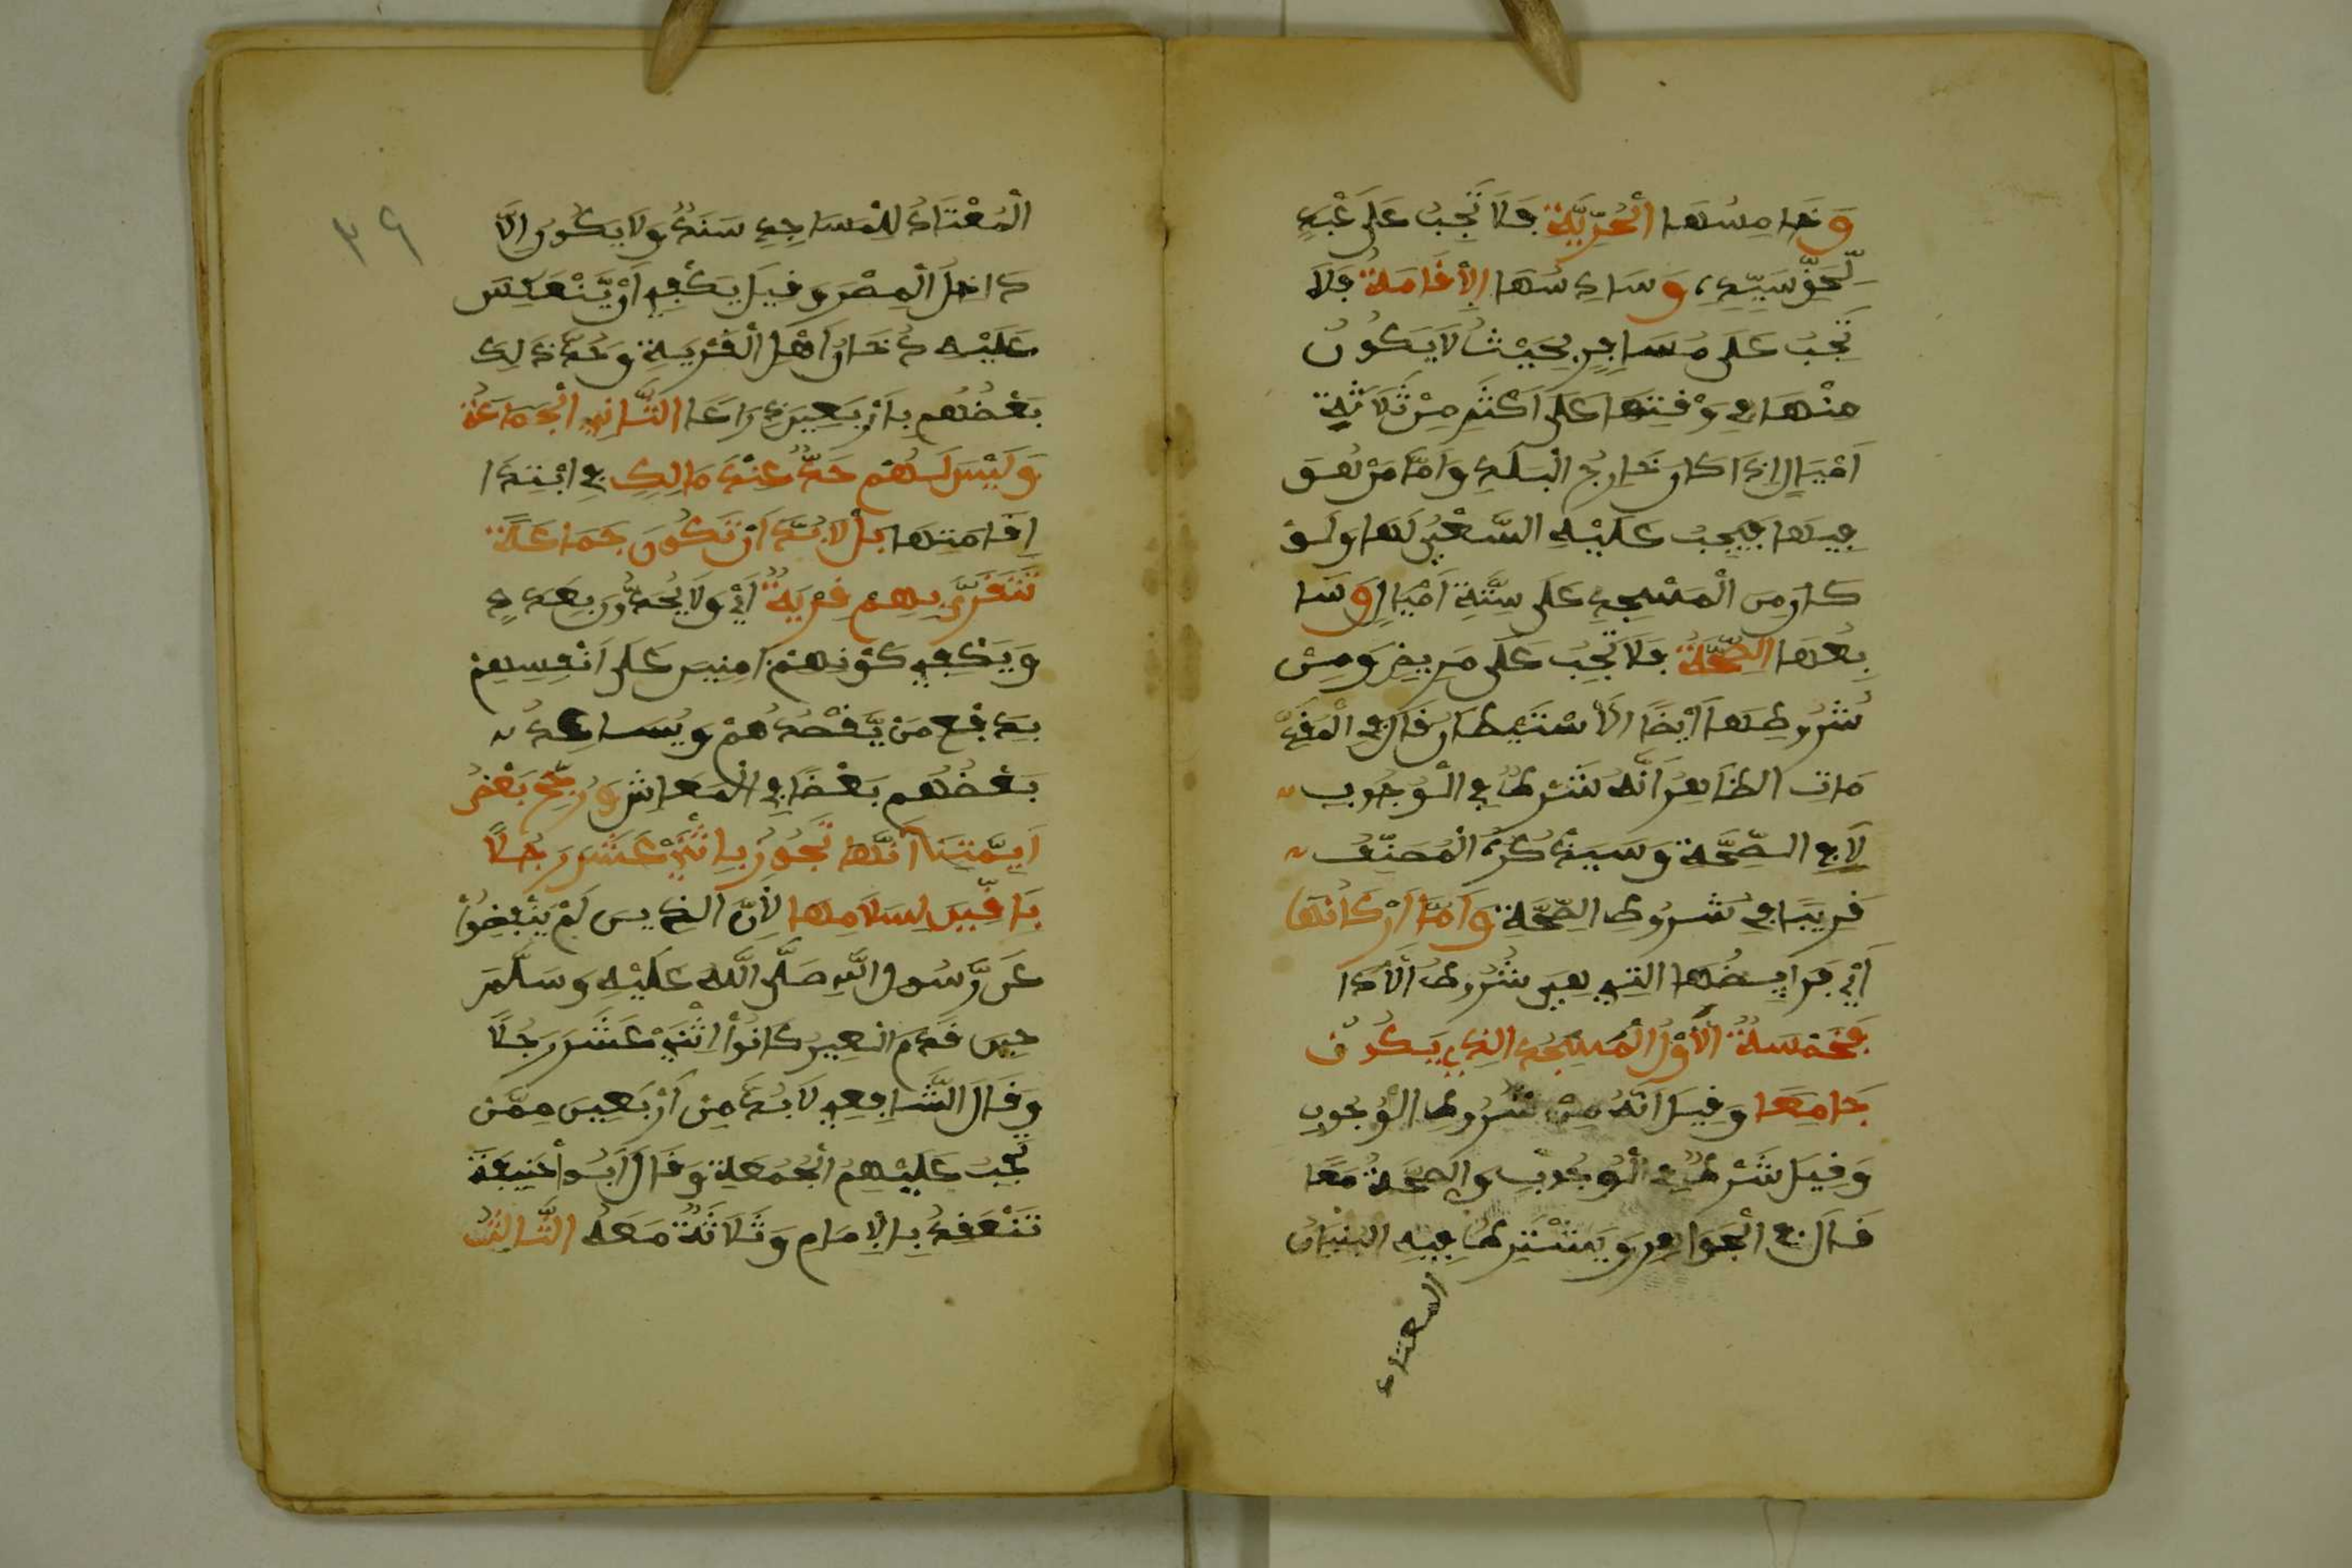 وَخَامِسُهَا الْحُرِّيَّةُ فَلَا تَجِبُ عَلَى عَبْدٍ
لِّحَقِّ سَيِّدِهِ، وَسَادِسُهَا الْإِقَامَةُ فَلَا
تَجِبُ عَلَى مُسَافِرٍ بِحَيْثُ لَا يَكُونُ
مِنْهَا فِي وَقْتِهَا عَلَى أَكْثَرِ مِنْ ثَلَاثَةِ
أَمْيَالٍ إِذَا كَانَ خَارِجُ الْبَلَدِ وَأَمَّا مَنْ هُوَ
فِيهَا فَيَجِبُ عَلَيْهِ السَّعْيُ لَهَا وَلَوْ
كَانَ مِنَ الْمَسْجِدِ عَلَى سِتَّةِ أَمْيَالٍ وَسَا
بِعُهَا الصِّحَّةُ فَلَا تَجِبُ عَلَى مَرِيضٍ وَمِنْ
شُرُوطِهَا أَيْضًا الْاسْتِيطَانُ قَالَ فِي الْمُقَدِّ
مَاتِ الظَّاهِرُ أَنَّهُ شَرْطٌ فِي الْوُجُوبِ
لَا فِي الصِّحَّةِ وَسَيَذْكُرُهُ الْمُصَنِّفُ
قَرِيبًا فِي شُرُوطِ الصِّحَّةِ وَأَمَّا أَرْكَانُهَا
أَيْ فَرَايِضُهَا الَّتِي هِيَ شُرُوطُ الْأَدَا
فَخَمْسَةٌ الْأَوَّلُ الْمَسْجِدُ الَّذِي يَكُونُ
جَامِعًا وَقِيلَ أَنَّهُ مِنْ شُرُوطِ الْوُجُوبِ
وَقِيلَ شَرْطٌ فِي الْوُجُوبِ وَالصِّحَّةِ مَعًا
قَالَ فِي الْجَوَاهِرِ وَيُشْتَرِطُ فِيهِ الْبُنْيَانُ
المعتاد
الْمُعْتَادُ لِلْمَسَاجِدِ سَنَدٌ وَلَا يَكُونُ إِلَّا
دَاخِلَ الْمِصْرِ وَقِيلَ يَكْفِي أَنْ يَّنْعَكِسَ
عَلَيْهِ دُخَانُ أَهْلِ الْقَرْيَةِ وَحَدَّ ذَلِكَ
بَعْضُهُم بِأَرْبَعِينَ ذِرَاعًا الثَّانِي الْجَمَاعَةُ
وَلَيْسَ لَهُمْ حَدٌّ عِنْدَ مَالِكٍ فِي ابْتِدَا
إِقَامَتِهَا بَلْ لَا بُدَّ أَنْ تَكُونَ جَمَاعَةً
تَتَقَرَّى بِهِمْ قَرْيَةٌ أَيْ وَلَا يُحَدُّونَ بِعَدَدٍ
وَيَكْفِي كَوْنِهِمْ آمِنِينَ عَلَى أَنْفُسِهِمْ
بِدَفْعِ مَنْ يَّقْصُدُهُمْ وَيُسَاعِدُ
بَعْضُهُم بَعْضًا فِي الْمَعَاشِ وَرَجَّحَ بَعْضُ
أَيِمَّتِنَا أَنَّهَا تَجُوزُ بِاثْنَيْ عَشَرَ رَجُلًا
بَاقِينَ لِسَلَامِهَا لِأَنَّ الَّذِينَ لَمْ يَنْفَضُّوا
عَن رَّسُولِ اللَّهِ صَلَّى اللَّهُ عَلَيْهِ وَسَلَّمَ
حِينَ قَدِمَ الْعِيرُ كَانُوا اثْنَيْ عَشَرَ رَجُلًا
وَقَالَ الشَّافِعِي لَا بُدَّ مِن أَرْبَعِينَ مِمَّن
تَجِبُ عَلَيْهِمُ الْجُمُعَةِ وَقَالَ أَبُوا حَنِيفَةَ
تَنْعَقِدُ بِالْإِمَامِ وَثَلَاثَةٌ مَعَهُ الثَّالِثُ
٣٩